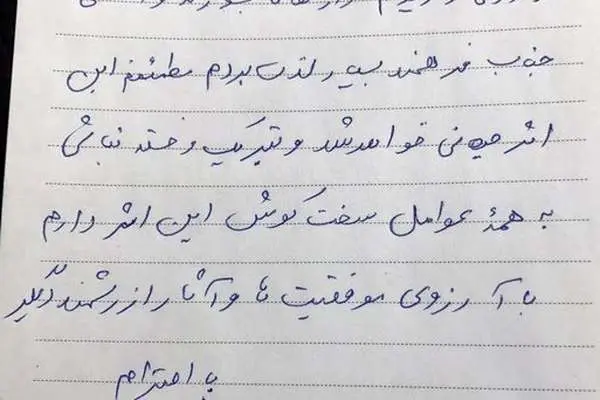 جناب فرهمند بسیار لذت بردم مطمئنم این
اثر جهانی خواهد شد و تبریک و خسته نباشی
به همهٔ عوامل سخت کوش این اثر دارم
با آرزوی موفقیت ها و آثار ارزشمند دیگر
با احترام